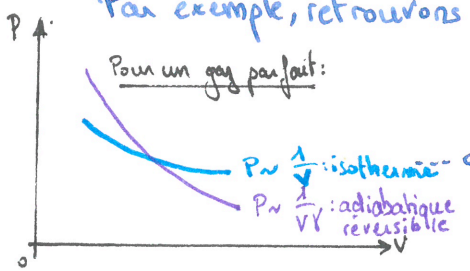 Par exemple, retrouvons
P
Pour un gaz parfait:
P ~ 1/V : isotherme
P ~ 1/Vγ : adiabatique
réversible
0
V